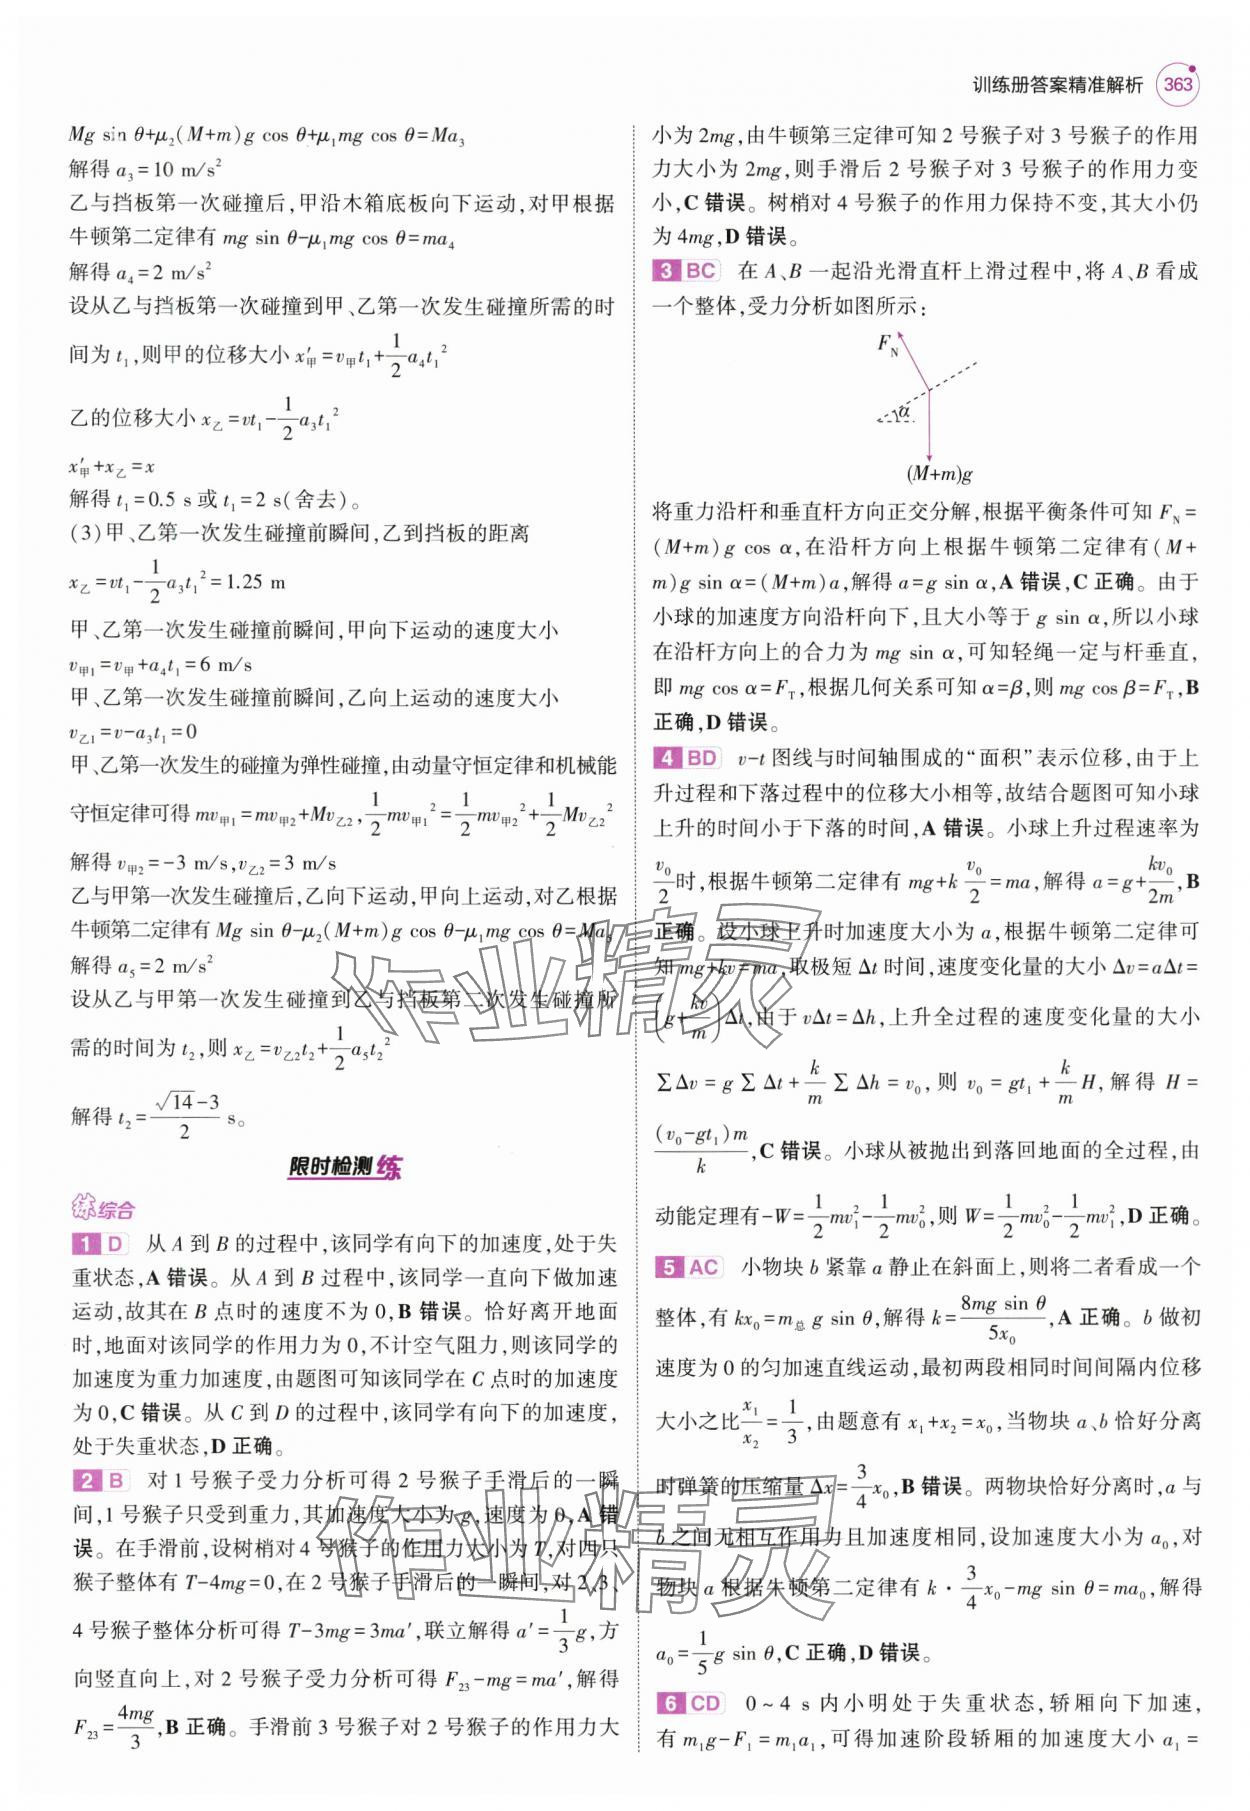 训练册答案精准解析 363
Mg sin θ+μ₂(M+m)g cos θ+μ₁mg cos θ=Ma₃
解得 a₃=10 m/s²
乙与挡板第一次碰撞后,甲沿木箱底板向下运动,对甲根据
牛顿第二定律有 mg sin θ-μ₁mg cos θ=ma₄
解得 a₄=2 m/s²
设从乙与挡板第一次碰撞到甲、乙第一次发生碰撞所需的时
间为 t₁,则甲的位移大小 x′甲=v甲t₁+1/2 a₄t₁²
乙的位移大小 x乙=vt₁-1/2 a₃t₁²
x′甲+x乙=x
解得 t₁=0.5 s 或 t₁=2 s(舍去)。
(3)甲、乙第一次发生碰撞前瞬间,乙到挡板的距离
x乙=vt₁-1/2 a₃t₁²=1.25 m
甲、乙第一次发生碰撞前瞬间,甲向下运动的速度大小
v甲1=v甲+a₄t₁=6 m/s
甲、乙第一次发生碰撞前瞬间,乙向上运动的速度大小
v乙1=v-a₃t₁=0
甲、乙第一次发生的碰撞为弹性碰撞,由动量守恒定律和机械能
守恒定律可得 mv甲1=mv甲2+Mv乙2,1/2 mv甲1²=1/2 mv甲2²+1/2 Mv乙2²
解得 v甲2=-3 m/s,v乙2=3 m/s
乙与甲第一次发生碰撞后,乙向下运动,甲向上运动,对乙根据
牛顿第二定律有 Mg sin θ-μ₂(M+m)g cos θ-μ₁mg cos θ=Ma₅
解得 a₅=2 m/s²
设从乙与甲第一次发生碰撞到乙与挡板第二次发生碰撞所
需的时间为 t₂,则 x乙=v乙2t₂+1/2 a₅t₂²
解得 t₂=(√14-3)/2 s。
限时检测 练
练 综合
1 D 从 A 到 B 的过程中,该同学有向下的加速度,处于失
重状态,A 错误。从 A 到 B 过程中,该同学一直向下做加速
运动,故其在 B 点时的速度不为 0,B 错误。恰好离开地面
时,地面对该同学的作用力为 0,不计空气阻力,则该同学的
加速度为重力加速度,由题图可知该同学在 C 点时的加速度
为 0,C 错误。从 C 到 D 的过程中,该同学有向下的加速度,
处于失重状态,D 正确。
2 B 对 1 号猴子受力分析可得 2 号猴子手滑后的一瞬
间,1 号猴子只受到重力,其加速度大小为 g,速度为 0,A 错
误。在手滑前,设树梢对 4 号猴子的作用力大小为 T,对四只
猴子整体有 T-4mg=0,在 2 号猴子手滑后的一瞬间,对 2、3、
4 号猴子整体分析可得 T-3mg=3ma′,联立解得 a′=1/3 g,方
向竖直向上,对 2 号猴子受力分析可得 F₂₃-mg=ma′,解得
F₂₃=4mg/3,B 正确。手滑前 3 号猴子对 2 号猴子的作用力大
小为 2mg,由牛顿第三定律可知 2 号猴子对 3 号猴子的作用
力大小为 2mg,则手滑后 2 号猴子对 3 号猴子的作用力变
小,C 错误。树梢对 4 号猴子的作用力保持不变,其大小仍
为 4mg,D 错误。
3 BC 在 A、B 一起沿光滑直杆上滑过程中,将 A、B 看成
一个整体,受力分析如图所示:
F_N
α
(M+m)g
将重力沿杆和垂直杆方向正交分解,根据平衡条件可知 F_N=
(M+m)g cos α,在沿杆方向上根据牛顿第二定律有(M+
m)g sin α=(M+m)a,解得 a=g sin α,A 错误,C 正确。由于
小球的加速度方向沿杆向下,且大小等于 g sin α,所以小球
在沿杆方向上的合力为 mg sin α,可知轻绳一定与杆垂直,
即 mg cos α=F_T,根据几何关系可知 α=β,则 mg cos β=F_T,B
正确,D 错误。
4 BD v-t 图线与时间轴围成的“面积”表示位移,由于上
升过程和下落过程中的位移大小相等,故结合题图可知小球
上升的时间小于下落的时间,A 错误。小球上升过程速率为
v₀/2 时,根据牛顿第二定律有 mg+k v₀/2=ma,解得 a=g+kv₀/2m,B
正确。设小球上升时加速度大小为 a,根据牛顿第二定律可
知 mg+kv=ma,取极短 Δt 时间,速度变化量的大小 Δv=aΔt=
(g+kv/m)Δt,由于 vΔt=Δh,上升全过程的速度变化量的大小
∑Δv=g∑Δt+k/m ∑Δh=v₀,则 v₀=gt₁+k/m H,解得 H=
(v₀-gt₁)m/k,C 错误。小球从被抛出到落回地面的全过程,由
动能定理有-W=1/2 mv₁²-1/2 mv₀²,则 W=1/2 mv₀²-1/2 mv₁²,D 正确。
5 AC 小物块 b 紧靠 a 静止在斜面上,则将二者看成一个
整体,有 kx₀=m总 g sin θ,解得 k=8mg sin θ/5x₀,A 正确。b 做初
速度为 0 的匀加速直线运动,最初两段相同时间间隔内位移
大小之比 x₁/x₂=1/3,由题意有 x₁+x₂=x₀,当物块 a、b 恰好分离
时弹簧的压缩量 Δx=3/4 x₀,B 错误。两物块恰好分离时,a 与
b 之间无相互作用力且加速度相同,设加速度大小为 a₀,对
物块 a 根据牛顿第二定律有 k·3/4 x₀-mg sin θ=ma₀,解得
a₀=1/5 g sin θ,C 正确,D 错误。
6 CD 0~4 s 内小明处于失重状态,轿厢向下加速,
有 m₁g-F₁=m₁a₁,可得加速阶段轿厢的加速度大小 a₁=
作业精灵
作业精灵